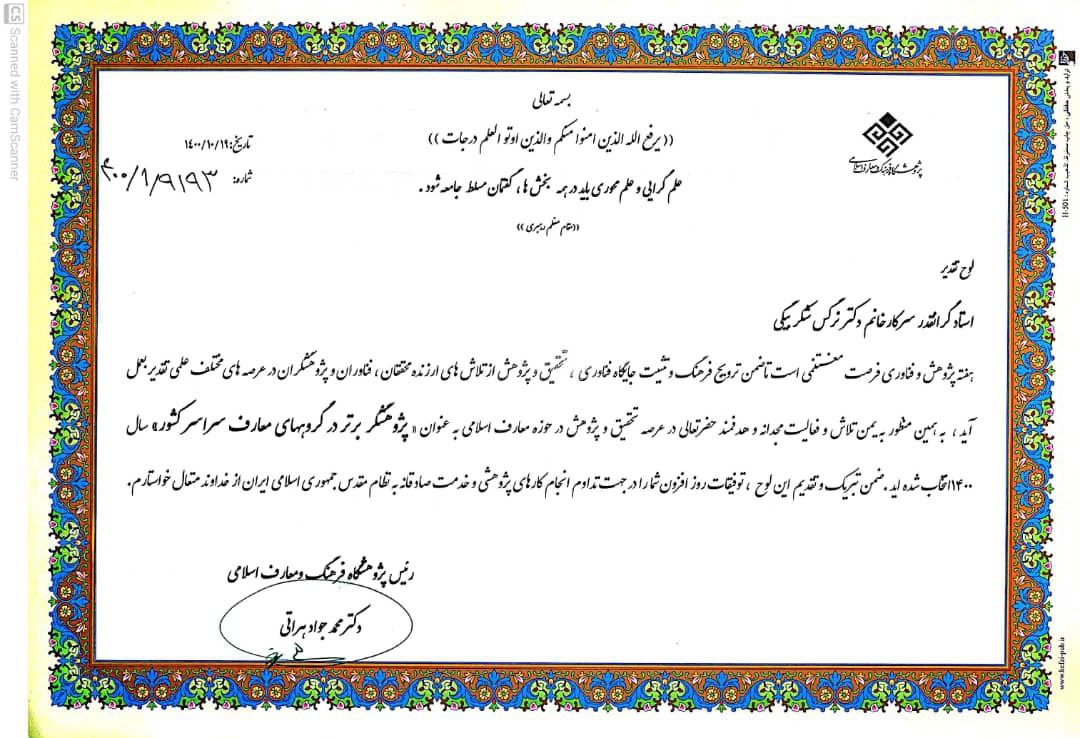 بسمه تعالی
((یرفع الله الذین امنوا منکم والذین اوتو العلم درجات))
علم گرایی و علم محوری باید در همه بخش ها، گفتمان مسلط جامعه شود.
((مقام معظم رهبری))
تاریخ: ۱۴۰۰/۱۰/۱۹
شماره: ۴۰۰/۱/۹۱۹۳
پژوهشگاه فرهنگ و معارف اسلامی
لوح تقدیر
استاد گرانقدر سرکار خانم دکتر نرگس شکربیگی
هفته پژوهش و فناوری فرصت مغتنمی است تا ضمن ترویج فرهنگ و تثبیت جایگاه فناوری، تحقیق و پژوهش از تلاش های ارزنده محققان، فناوران و پژوهشگران در عرصه های مختلف علمی تقدیر بعمل
آید، به همین منظور به یمن تلاش و فعالیت مجدانه و هدفمند حضرتعالی در عرصه تحقیق و پژوهش در حوزه معارف اسلامی به عنوان «پژوهشگر برتر در گروههای معارف سراسر کشور» سال
۱۴۰۰ انتخاب شده اید. ضمن تبریک و تقدیم این لوح، توفیقات روز افزون شما را در جهت تداوم انجام کارهای پژوهشی و خدمت صادقانه به نظام مقدس جمهوری اسلامی ایران از خداوند متعال خواستارم.
رئیس پژوهشگاه فرهنگ و معارف اسلامی
دکتر محمد جواد هراتی
CS Scanned with CamScanner